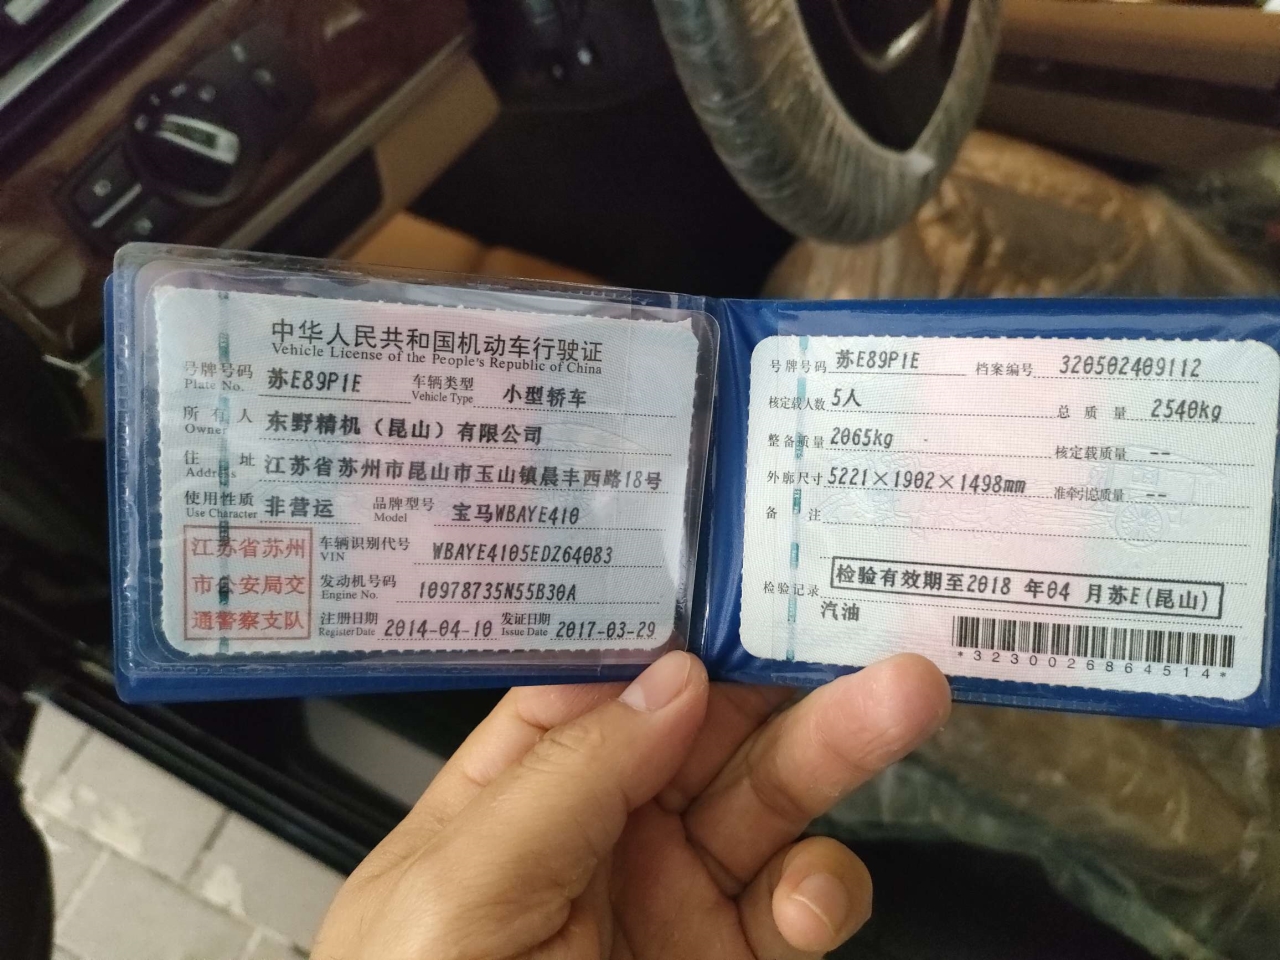 中华人民共和国机动车行驶证
Vehicle License of the People's Republic of China
号牌号码 苏E89P1E 车辆类型 小型轿车
Plate No. Vehicle Type
所有人 东野精机（昆山）有限公司
Owner
住址 江苏省苏州市昆山市玉山镇晨丰西路18号
Address
使用性质 非营运 品牌型号 宝马WBAYE410
Use Character Model
江苏省苏州
市公安局交
通警察支队
车辆识别代号 WBAYE4105EDZ64083
VIN
发动机号码 10978735N55B30A
Engine No.
注册日期 2014-04-10 发证日期 2017-03-29
Register Date Issue Date
号牌号码 苏E89P1E 档案编号 320502409112
核定载人数 5人 总质量 2540kg
整备质量 2065kg 核定载质量 --
外廓尺寸 5221×1902×1498mm 准牵引总质量 --
备注
检验记录 检验有效期至2018 年04 月苏E(昆山)
汽油
*3230026864514*